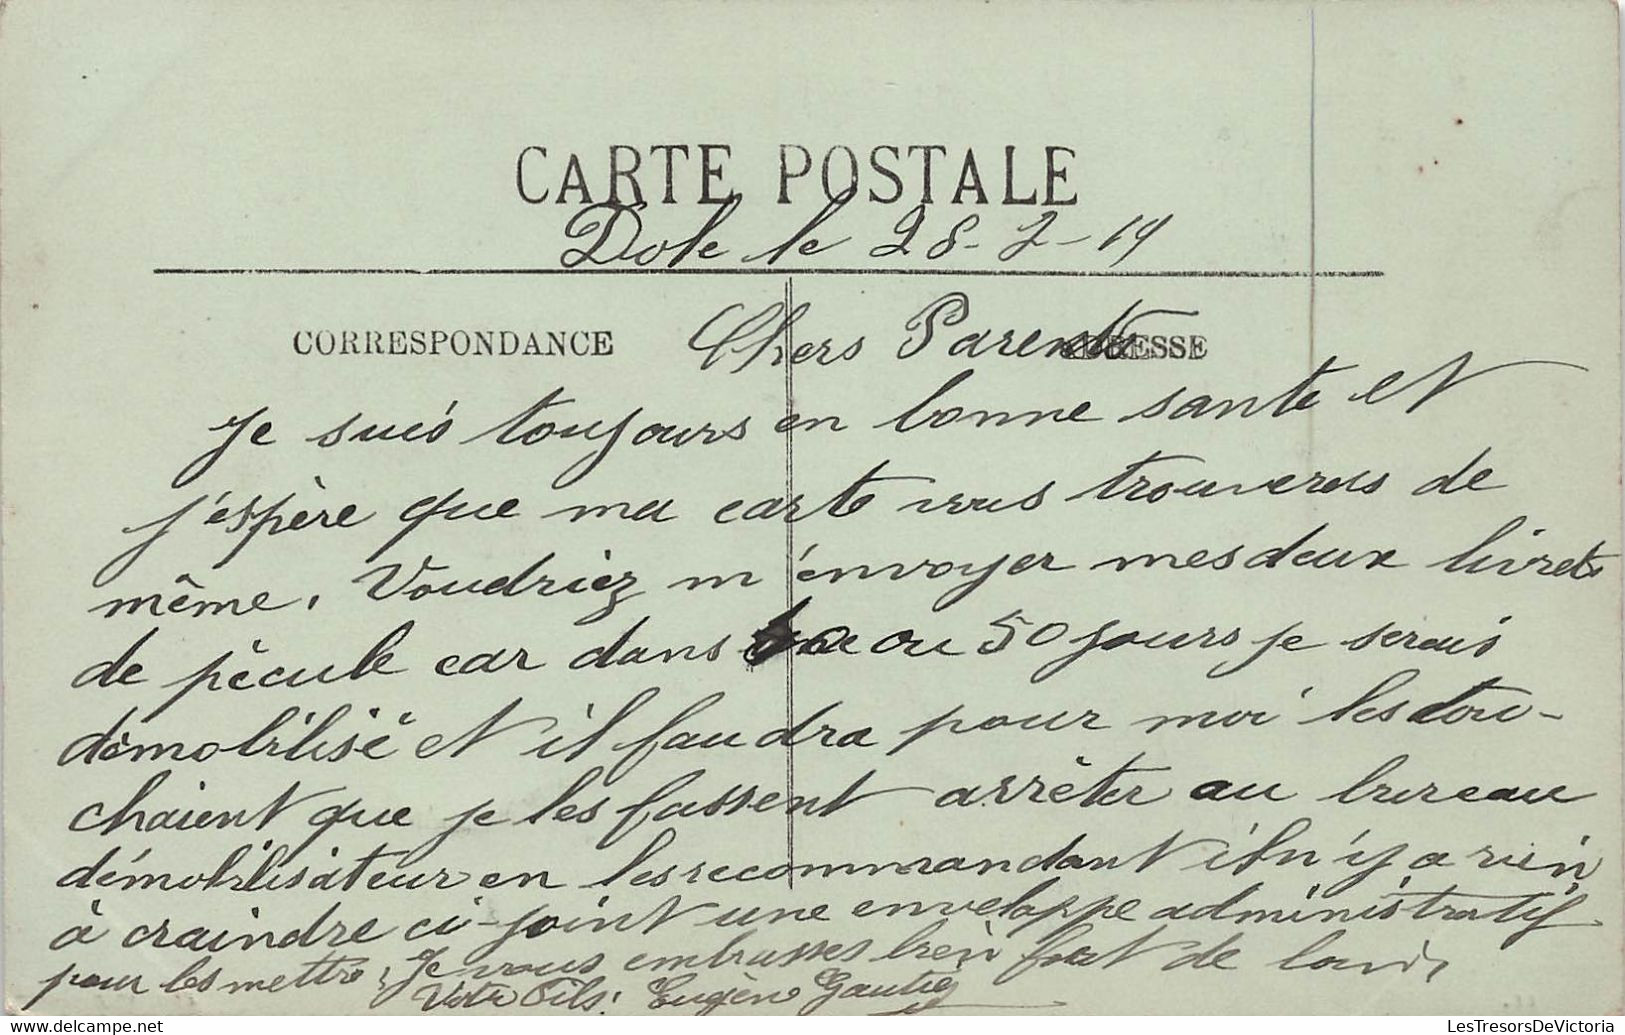 CARTE POSTALE
Dole le 28-7-19
CORRESPONDANCE
ADRESSE
Chers Parents
Je suis toujours en bonne sante et
j'espère que ma carte vous trouveras de
même. Voudriez m'envoyer mes deux livrets
de pécule car dans ou 50 jours je serais
démobilisé et il faudra pour moi les tou-
chaient que je les fassent arrêter au bureau
démobilisateur en les recommandant il n'y a rien
à craindre ci-joint une enveloppe administratif
pour les mettre. Je vous embrasses bien fort de loin.
Votre Fils: Eugène Gautier
LesTresorsDeVictoria